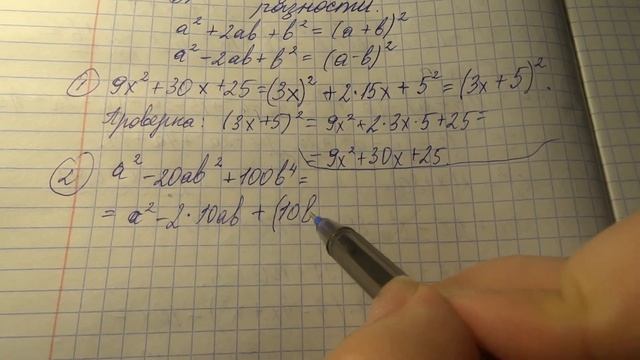 разности.
a² + 2ab + b² = (a + b)²
a² - 2ab + b² = (a - b)²
① 9x² + 30x + 25 = (3x)² + 2·15x + 5² = (3x + 5)².
Проверка: (3x+5)² = 9x² + 2·3x·5 + 25 =
= 9x² + 30x + 25
② a² - 20ab² + 100b⁴ =
= a² - 2·10ab + (10b